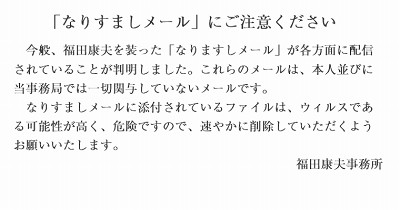 「なりすましメール」にご注意ください
今般、福田康夫を装った「なりますしメール」が各方面に配信
されていることが判明しました。これらのメールは、本人並びに
当事務局では一切関与していないメールです。
なりすましメールに添付されているファイルは、ウィルスであ
る可能性が高く、危険ですので、速やかに削除していただくよう
お願いいたします。
福田康夫事務所